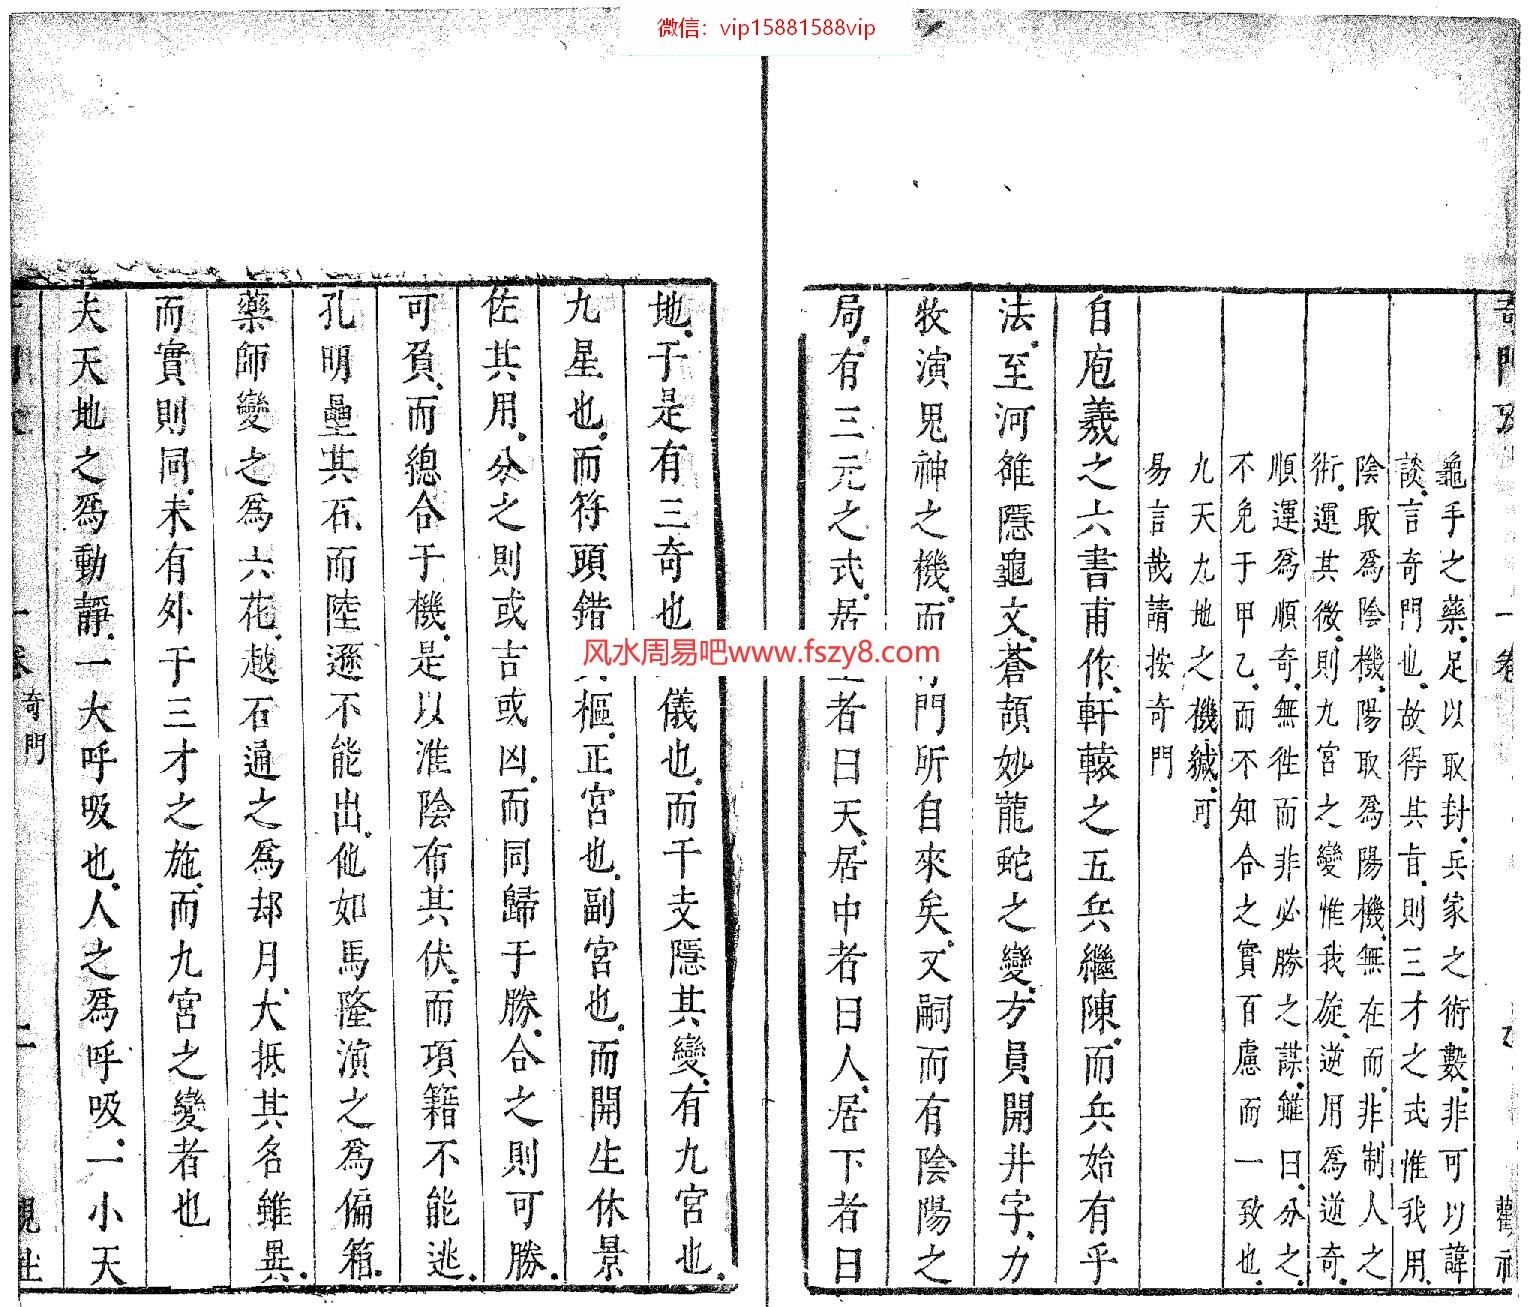 微信：vip15881588vip
奇門
一卷
龜手之藥足以取封兵家之術數非可以諱
談言奇門也故得其旨則三才之式惟我用
陰取爲陰機陽取爲陽機無在而非制人之
術運其微則九宮之變惟我旋逆用爲逆奇
順運爲順奇無徃而非必勝之謀雖曰分之
不免于甲乙而不知合之實百慮而一致也
九天九地之機緘可
易言哉請按奇門
自庖羲之六書甫作軒轅之五兵繼陳而兵始有乎
法至河雒隱龜文蒼頡妙龍蛇之變方員開井字力
牧演鬼神之機而門所自來矣又嗣而有陰陽之
局有三元之式居者曰天居中者曰人居下者曰
风水周易吧www.fszy8.com
地于是有三奇也儀也而干支隱其變有九宮也
九星也而符頭錯樞正宮也副宮也而開生休景
佐其用分之則或吉或凶而同歸于勝合之則可勝
可負而總合于機是以淮陰布其伏而項籍不能逃
孔明壘其石而陸遜不能出他如馬隆演之爲偏箱
藥師變之爲六花越石通之爲却月大抵其名雖異
而實則同未有外于三才之施而九宮之變者也
夫天地之爲動靜一大呼吸也人之爲呼吸一小天
奇門